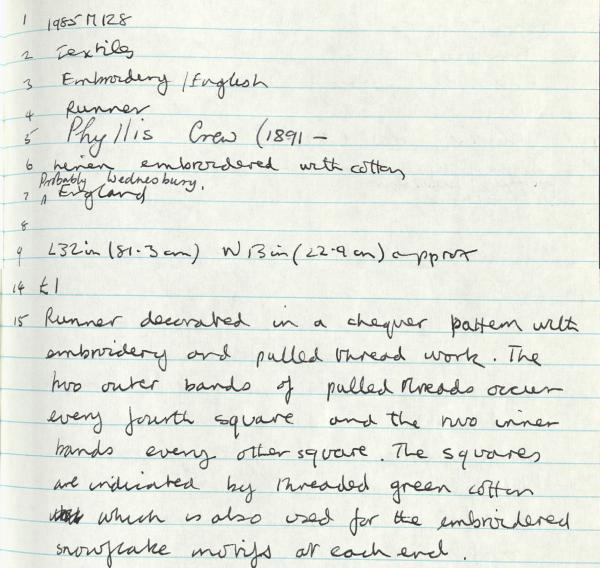 1 1985 M128
2 Textiles
3 Embroidery / English
4 Runner
5 Phyllis Crew (1891 –
6 Linen embroidered with cotton
Probably Wednesbury,
7 ^ England
8
9 L32in (81.3 cm) W 13in (22.9 cm) approx
14 £1
15 Runner decorated in a chequer pattern with
embroidery and pulled thread work. The
two outer bands of pulled threads occur
every fourth square and the two inner
bands every other square. The squares
are indicated by threaded green cotton
which is also used for the embroidered
snowflake motifs at each end.